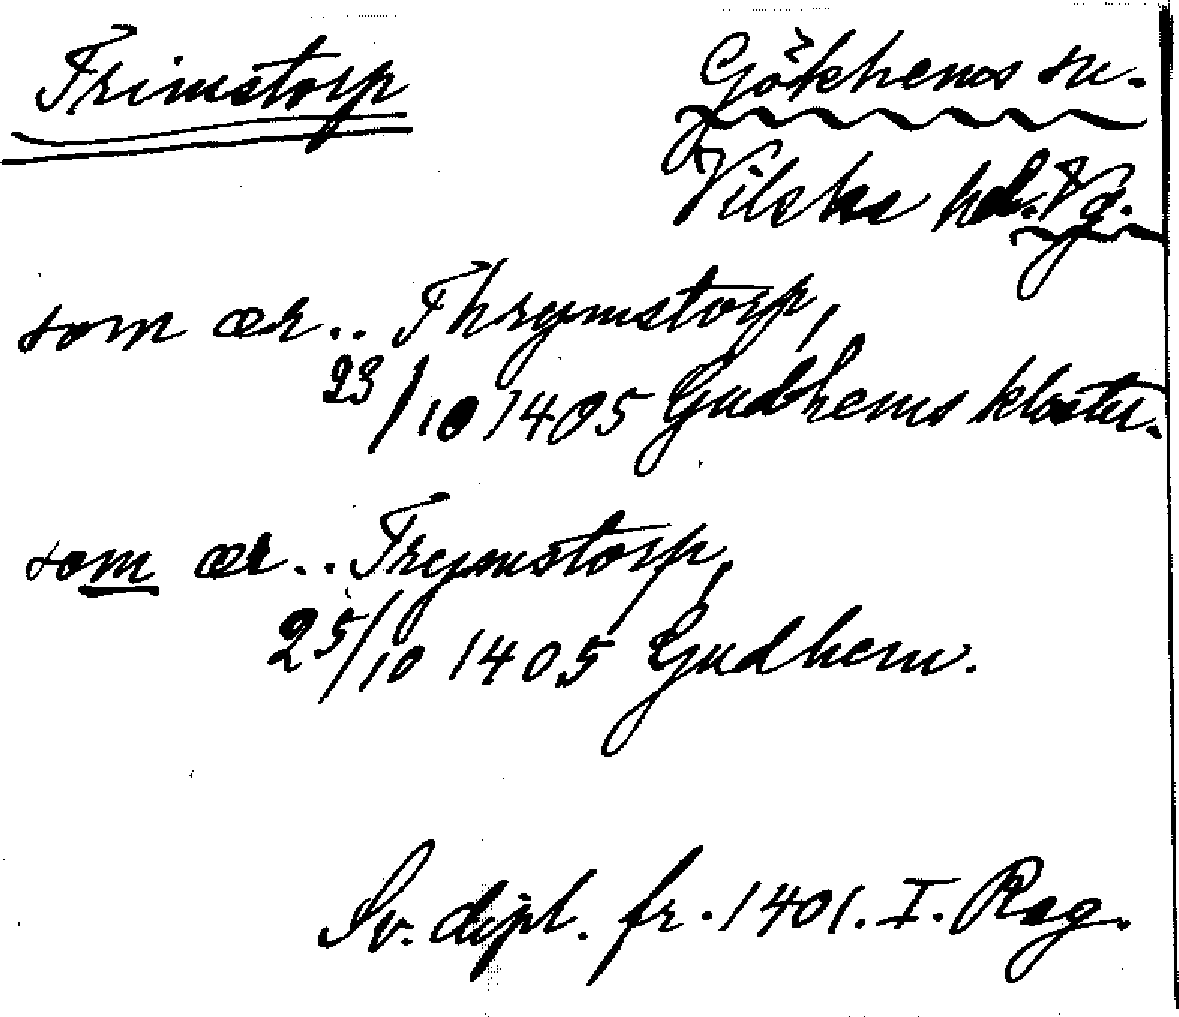 Trimstorp
Gökhems sn.
Vilske hd. Vg.
som ær.. Thrymstorp,
23/10 1405 Gudhems kloster.
som ær.. Trymstorp,
25/10 1405 Gudhem.
Sv. dipl. fr. 1401. I. Reg.